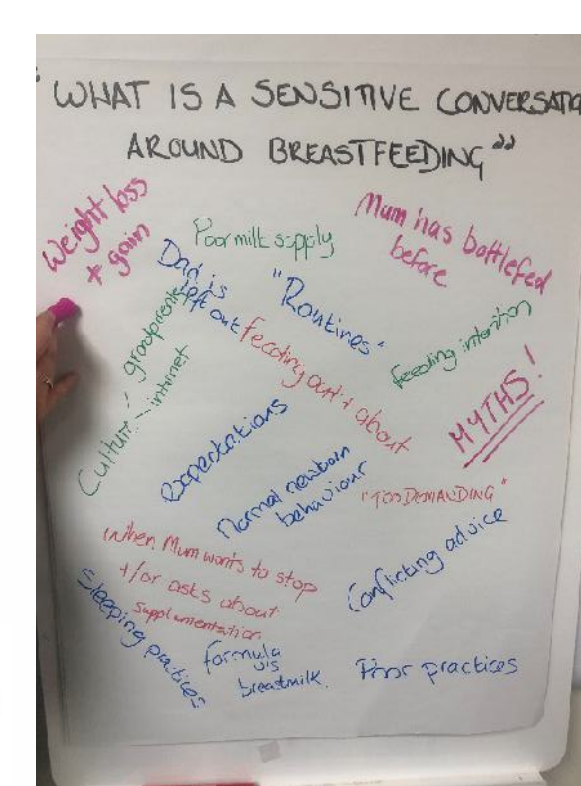 "WHAT IS A SENSITIVE CONVERSATIO
AROUND BREASTFEEDING"
Weight loss
+ gain
Poor milk supply
Mum has bottlefed
before
Dad is
left out
"Routines"
Feeding out + about
feeding intention
Culture - grandparents
- internet
MYTHS!
Expectations
Normal newborn
behaviour
"TOO DEMANDING"
When Mum wants to stop
+/or asks about
supplementation
Conflicting advice
Sleeping practices
formula
v's
breastmilk.
Prior practices